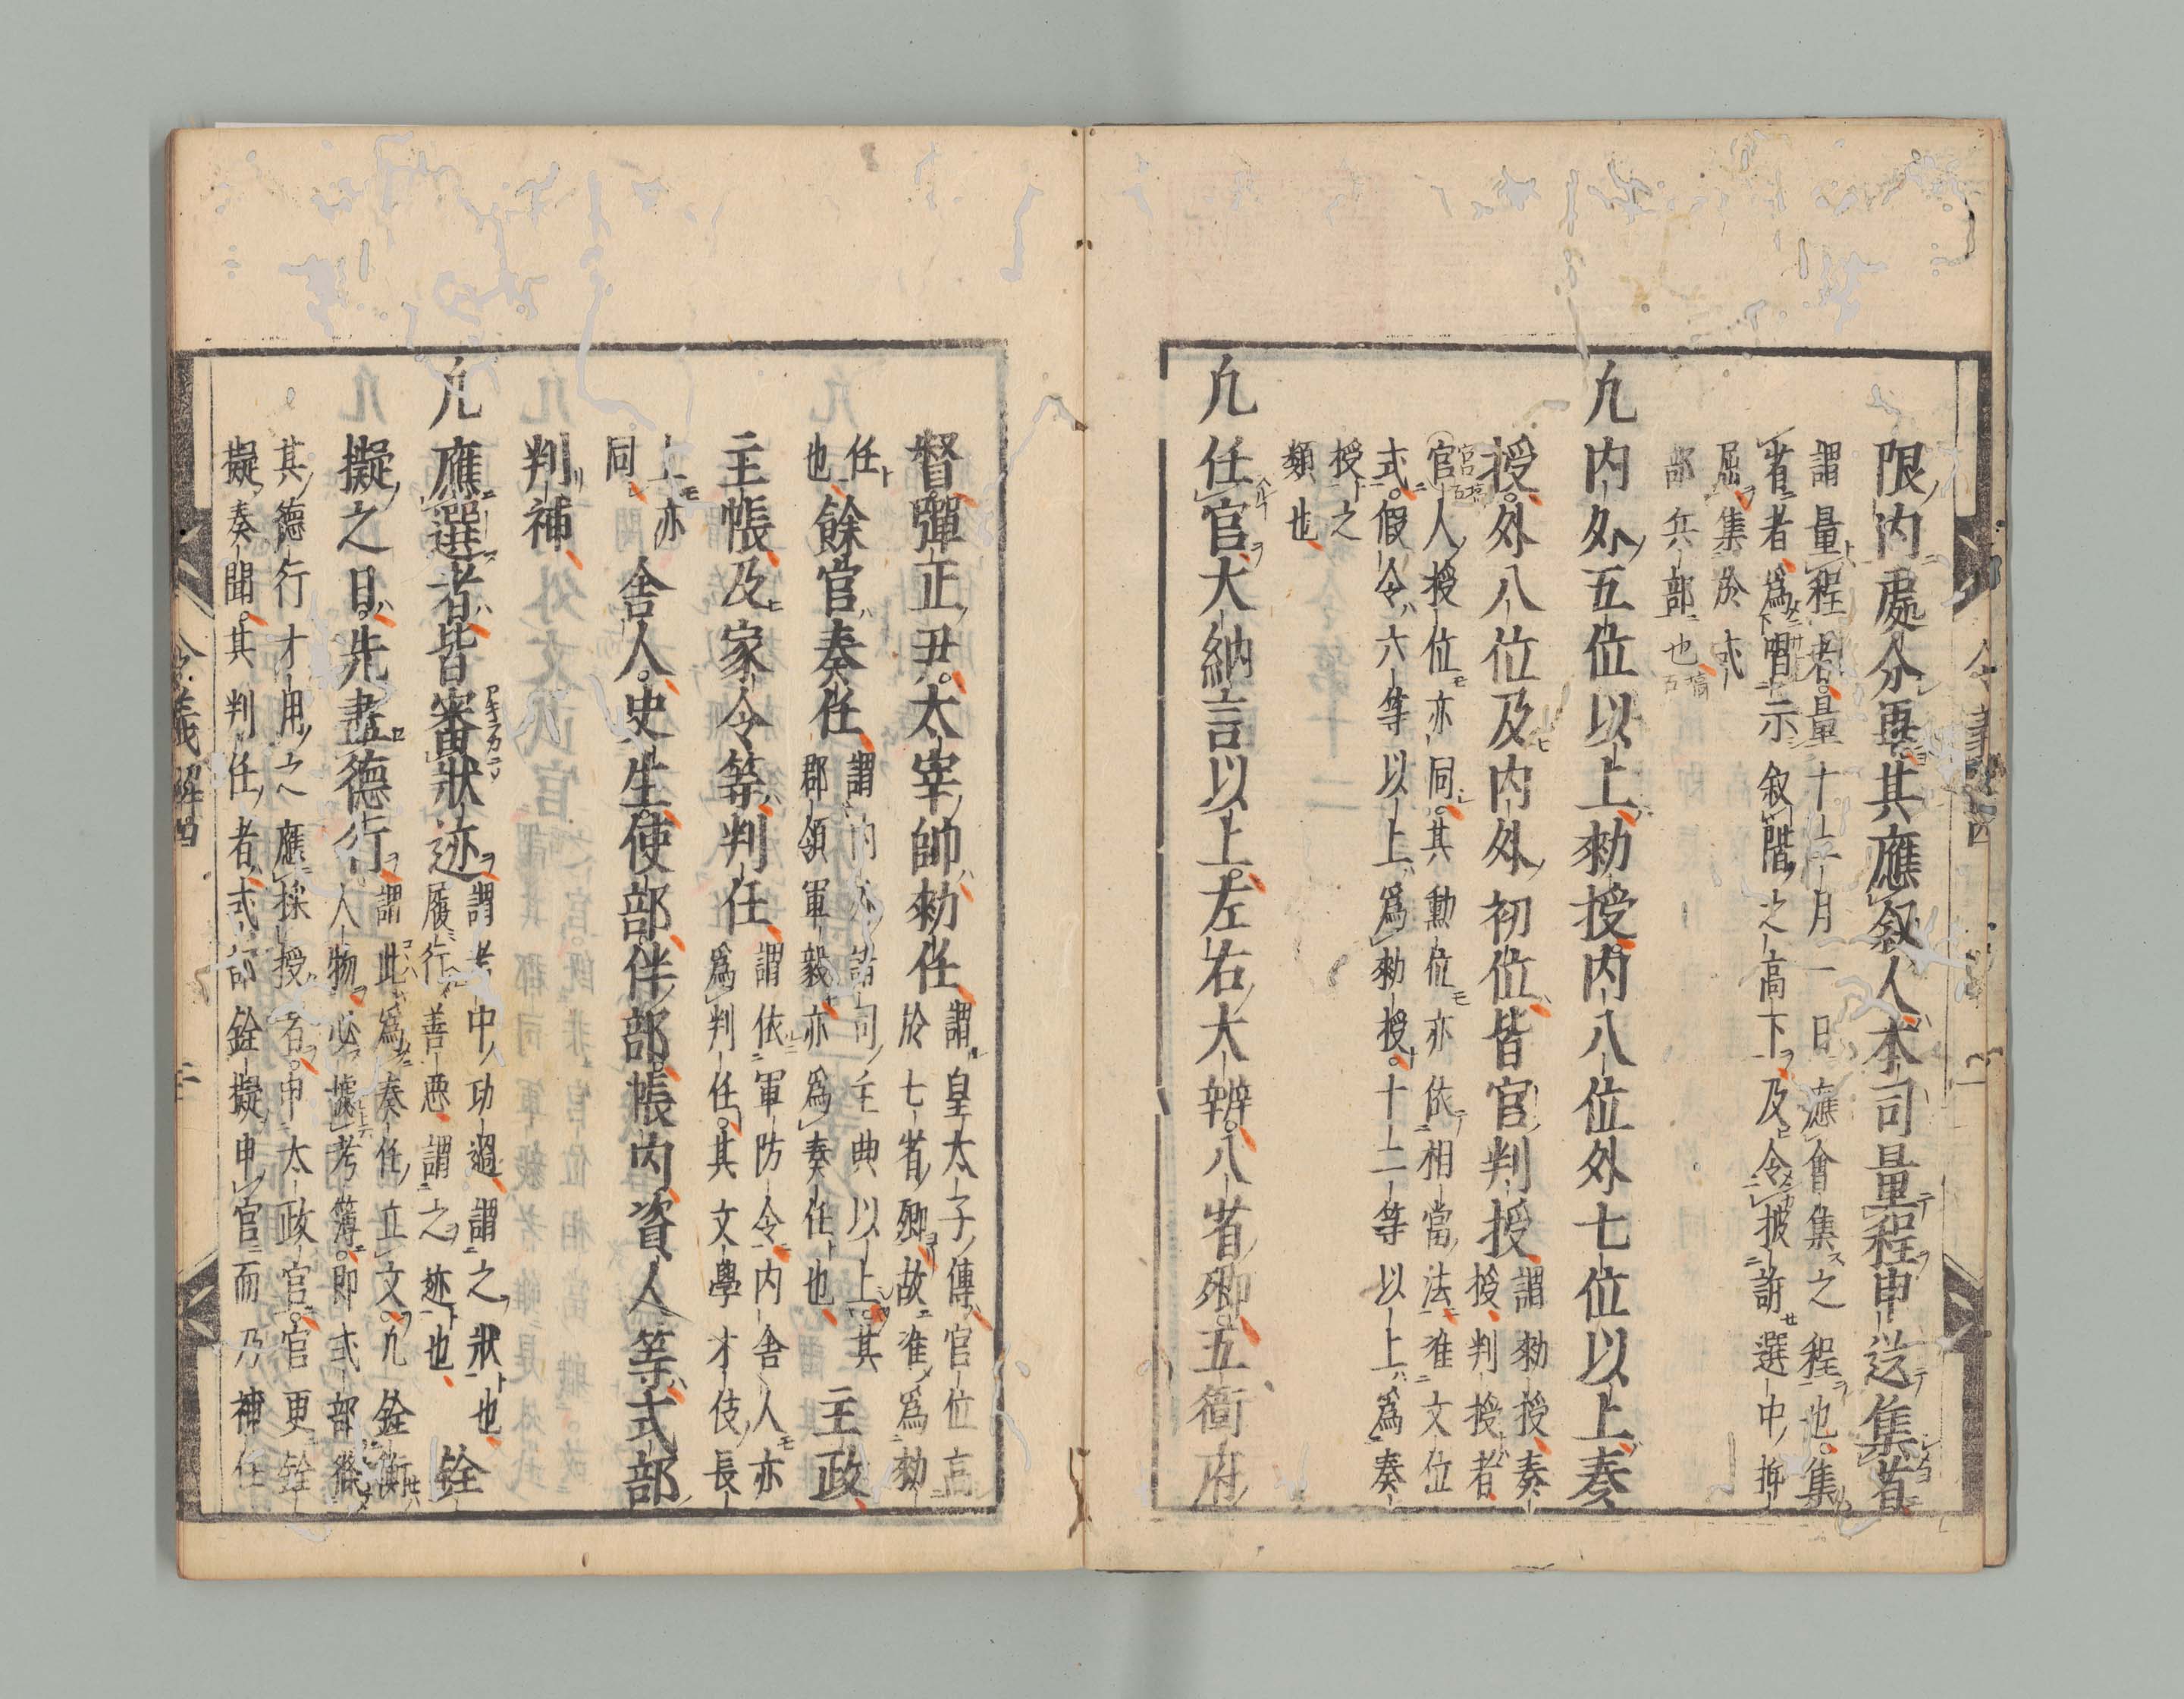 限内處分再其應叙人本司量程申送集省
謂量程者量十二月一日應會集之程也集
省者爲唱示叙階之高下及令披訴選中抑
屈集於式
部兵部也
凡内外五位以上勅授内八位外七位以上奏
授外八位及内外初位皆官判授
謂勅授奏
授判授者
官人授位亦同其勳位亦依相當法准文位
式假令六等以上爲勅授十二等以上爲奏
授之
類也
凡任官大納言以上左右大辨八省卿五衞府
督彈正尹太宰帥勅任
謂皇太子傅官位高
於七省卿故准爲勅
任
也
餘官奏任
謂内外諸司主典以上其
郡領軍毅亦爲奏任也
主政
主帳及家令等判任
謂依軍防令内舎人亦
爲判任其文學才伎長
上亦
同
舎人史生使部伴部帳内資人等式部
判補
凡應選者皆審狀迹
謂考中功過謂之狀也
履行善惡謂之迹也
銓
擬之日先盡德行
謂此爲奏任立文凡銓衡
人物必據考簿即式部
其德行才用之應採授者申太政官官更銓
擬奏聞其判任者式部銓擬申官而乃補任
令義解四